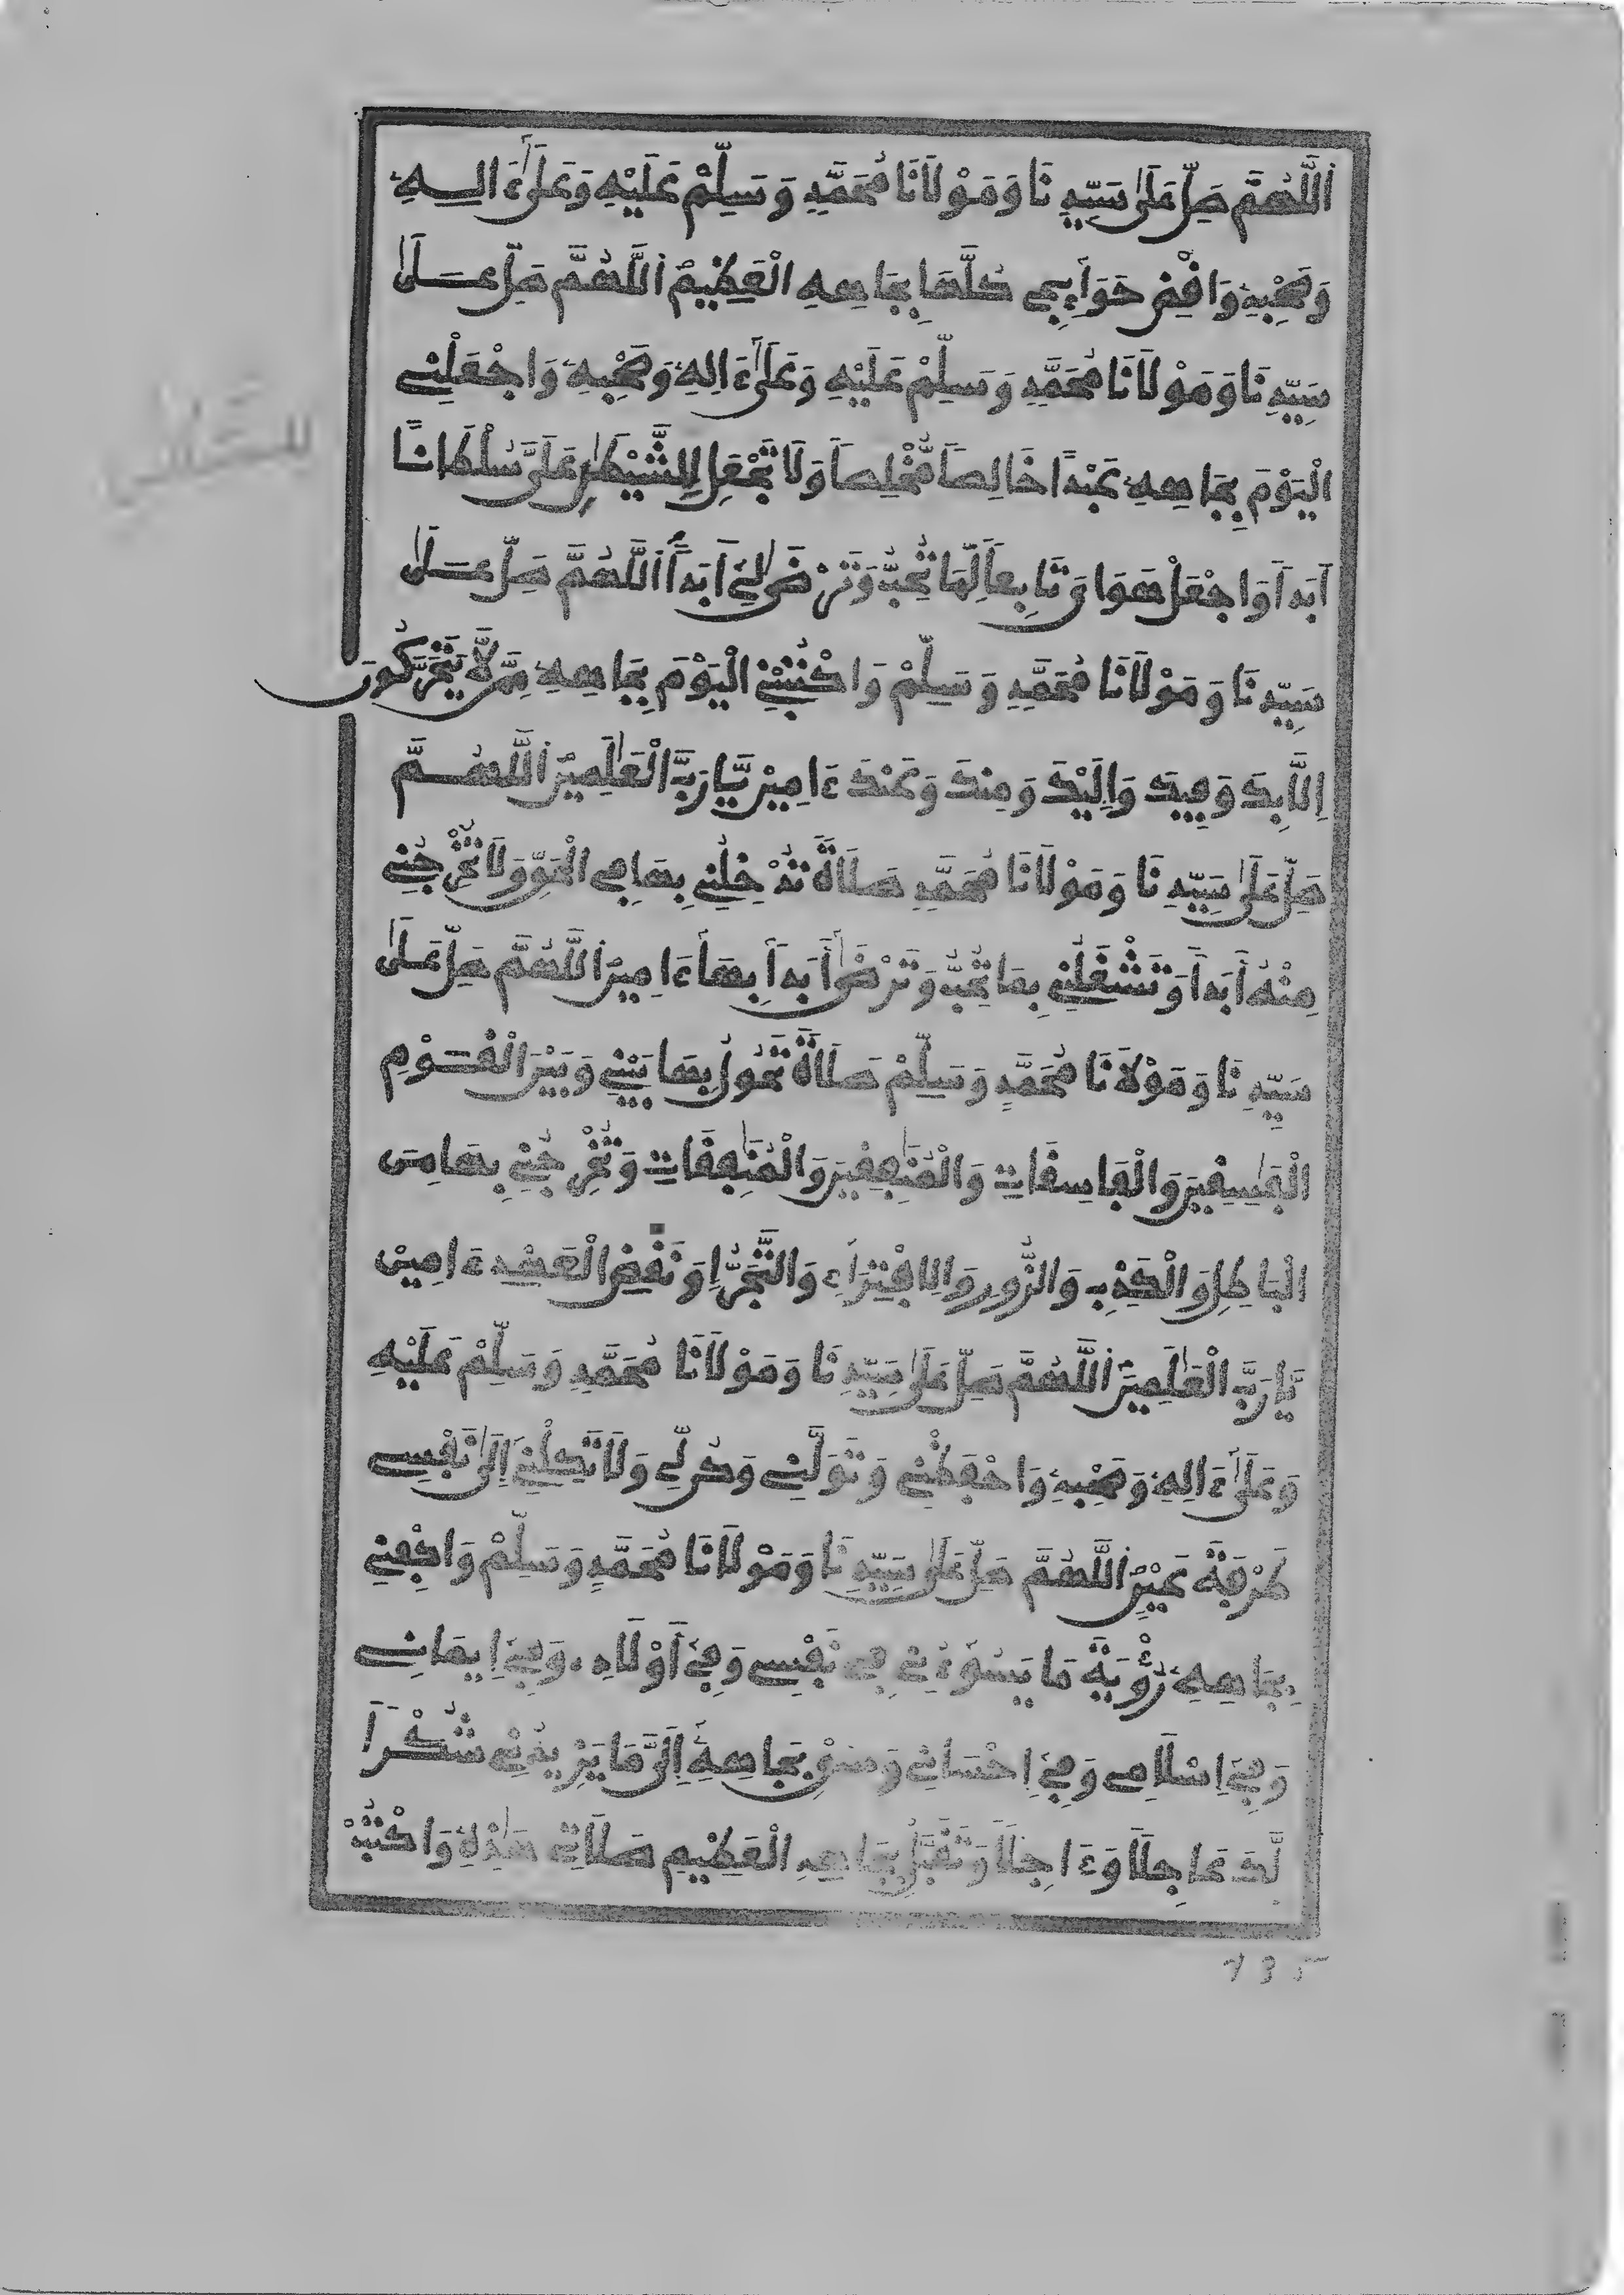 اَللَّهُمَّ صَلِّ عَلَىٰ سَيِّدِنَا وَمَوْلَانَا مُحَمَّدٍ وَسَلِّمْ عَلَيْهِ وَعَلَىٰٓ ءَالِهِ
وَصَحْبِهِ وَاقْضِ حَوَآئِجِى كُلَّهَا بِجَاهِهِ الْعَظِيمِ اَللَّهُمَّ صَلِّ عَلَىٰ
سَيِّدِنَا وَمَوْلَانَا مُحَمَّدٍ وَسَلِّمْ عَلَيْهِ وَعَلَىٰٓ ءَالِهِ وَصَحْبِهِ وَاجْعَلْنِے
الْيَوْمَ بِجَاهِهِ عَبْدًا خَالِصًا مُّخْلِصًا وَلَا تَجْعَلْ لِلشَّيْطَٰنِ عَلَىَّ سُلْطَانًا
اَبَدًا وَاجْعَلْ هَوَايَ تَابِعًا لِّمَا تُحِبُّ وَتَرْضَىٰ لِےَ اَبَدًا اَللَّهُمَّ صَلِّ عَلَىٰ
سَيِّدِنَا وَمَوْلَانَا مُحَمَّدٍ وَسَلِّمْ وَاكْتُبْنِے الْيَوْمَ بِجَاهِهِ مِمَّن لَّا يَتَحَرَّكُونَ
إِلَّا بِكَ وَفِيكَ وَإِلَيْكَ وَمِنكَ وَعَندَكَ ءَامِينْ يَّا رَبَّ الْعَٰلَمِينَ اَللَّهُمَّ
صَلِّ عَلَىٰ سَيِّدِنَا وَمَوْلَانَا مُحَمَّدٍ صَلَاةً تُدْخِلُنِے بِهَا فِے الْحَقِّ وَلَا تُخْرِجُنِے
مِنْهُ أَبَدًا وَتَشْغَلُنِے بِمَا تُحِبُّ وَتَرْضَىٰٓ أَبَدًا بِهَآ ءَامِينَ اَللَّهُمَّ صَلِّ عَلَىٰ
سَيِّدِنَا وَمَوْلَانَا مُحَمَّدٍ وَسَلِّمْ صَلَاةً تَحُولُ بِهَا بَيْنِے وَبَيْنَ الْقَوْمِ
الْفَٰسِقِينَ وَالْفَاسِقَاتِ وَالْمُنَٰفِقِينَ وَالْمُنَٰفِقَاتِ وَتُخْرِجُنِے بِهَا مِنَ
الْبَاطِلِ وَالْكَذِبِ وَالزُّورِ وَالِافْتِرَآءِ وَالتَّجَرُّإِ وَنَقْضِ الْعَهْدِ ءَامِينْ
يَّا رَبَّ الْعَٰلَمِينَ اَللَّهُمَّ صَلِّ عَلَىٰ سَيِّدِنَا وَمَوْلَانَا مُحَمَّدٍ وَسَلِّمْ عَلَيْهِ
وَعَلَىٰٓ ءَالِهِ وَصَحْبِهِ وَاحْفَظْنِے وَتَوَلَّنِے وَكُن لِّے وَلَا تَكِلْنِےٓ إِلَىٰ نَفْسِے
طَرْفَةَ عَيْنٍ اَللَّهُمَّ صَلِّ عَلَىٰ سَيِّدِنَا وَمَوْلَانَا مُحَمَّدٍ وَسَلِّمْ وَاكْفِنِے
بِجَاهِهِ رُؤْيَةَ مَا يَسُوٓءُنِے فِے نَفْسِے وَفِےٓ أَوْلَادِے وَفِےٓ إِيمَانِے
وَفِےٓ إِسْلَامِے وَفِےٓ إِحْسَانِے وَسُقْ بِجَاهِهِ إِلَىَّ مَا يَزِيدُنِے شُكْرًا
لَّكَ عَاجِلًا وَءَاجِلًا وَتَقَبَّلْ بِجَاهِهِ الْعَظِيمِ صَلَاتِے هَٰذِهِ وَاكْتُبْ